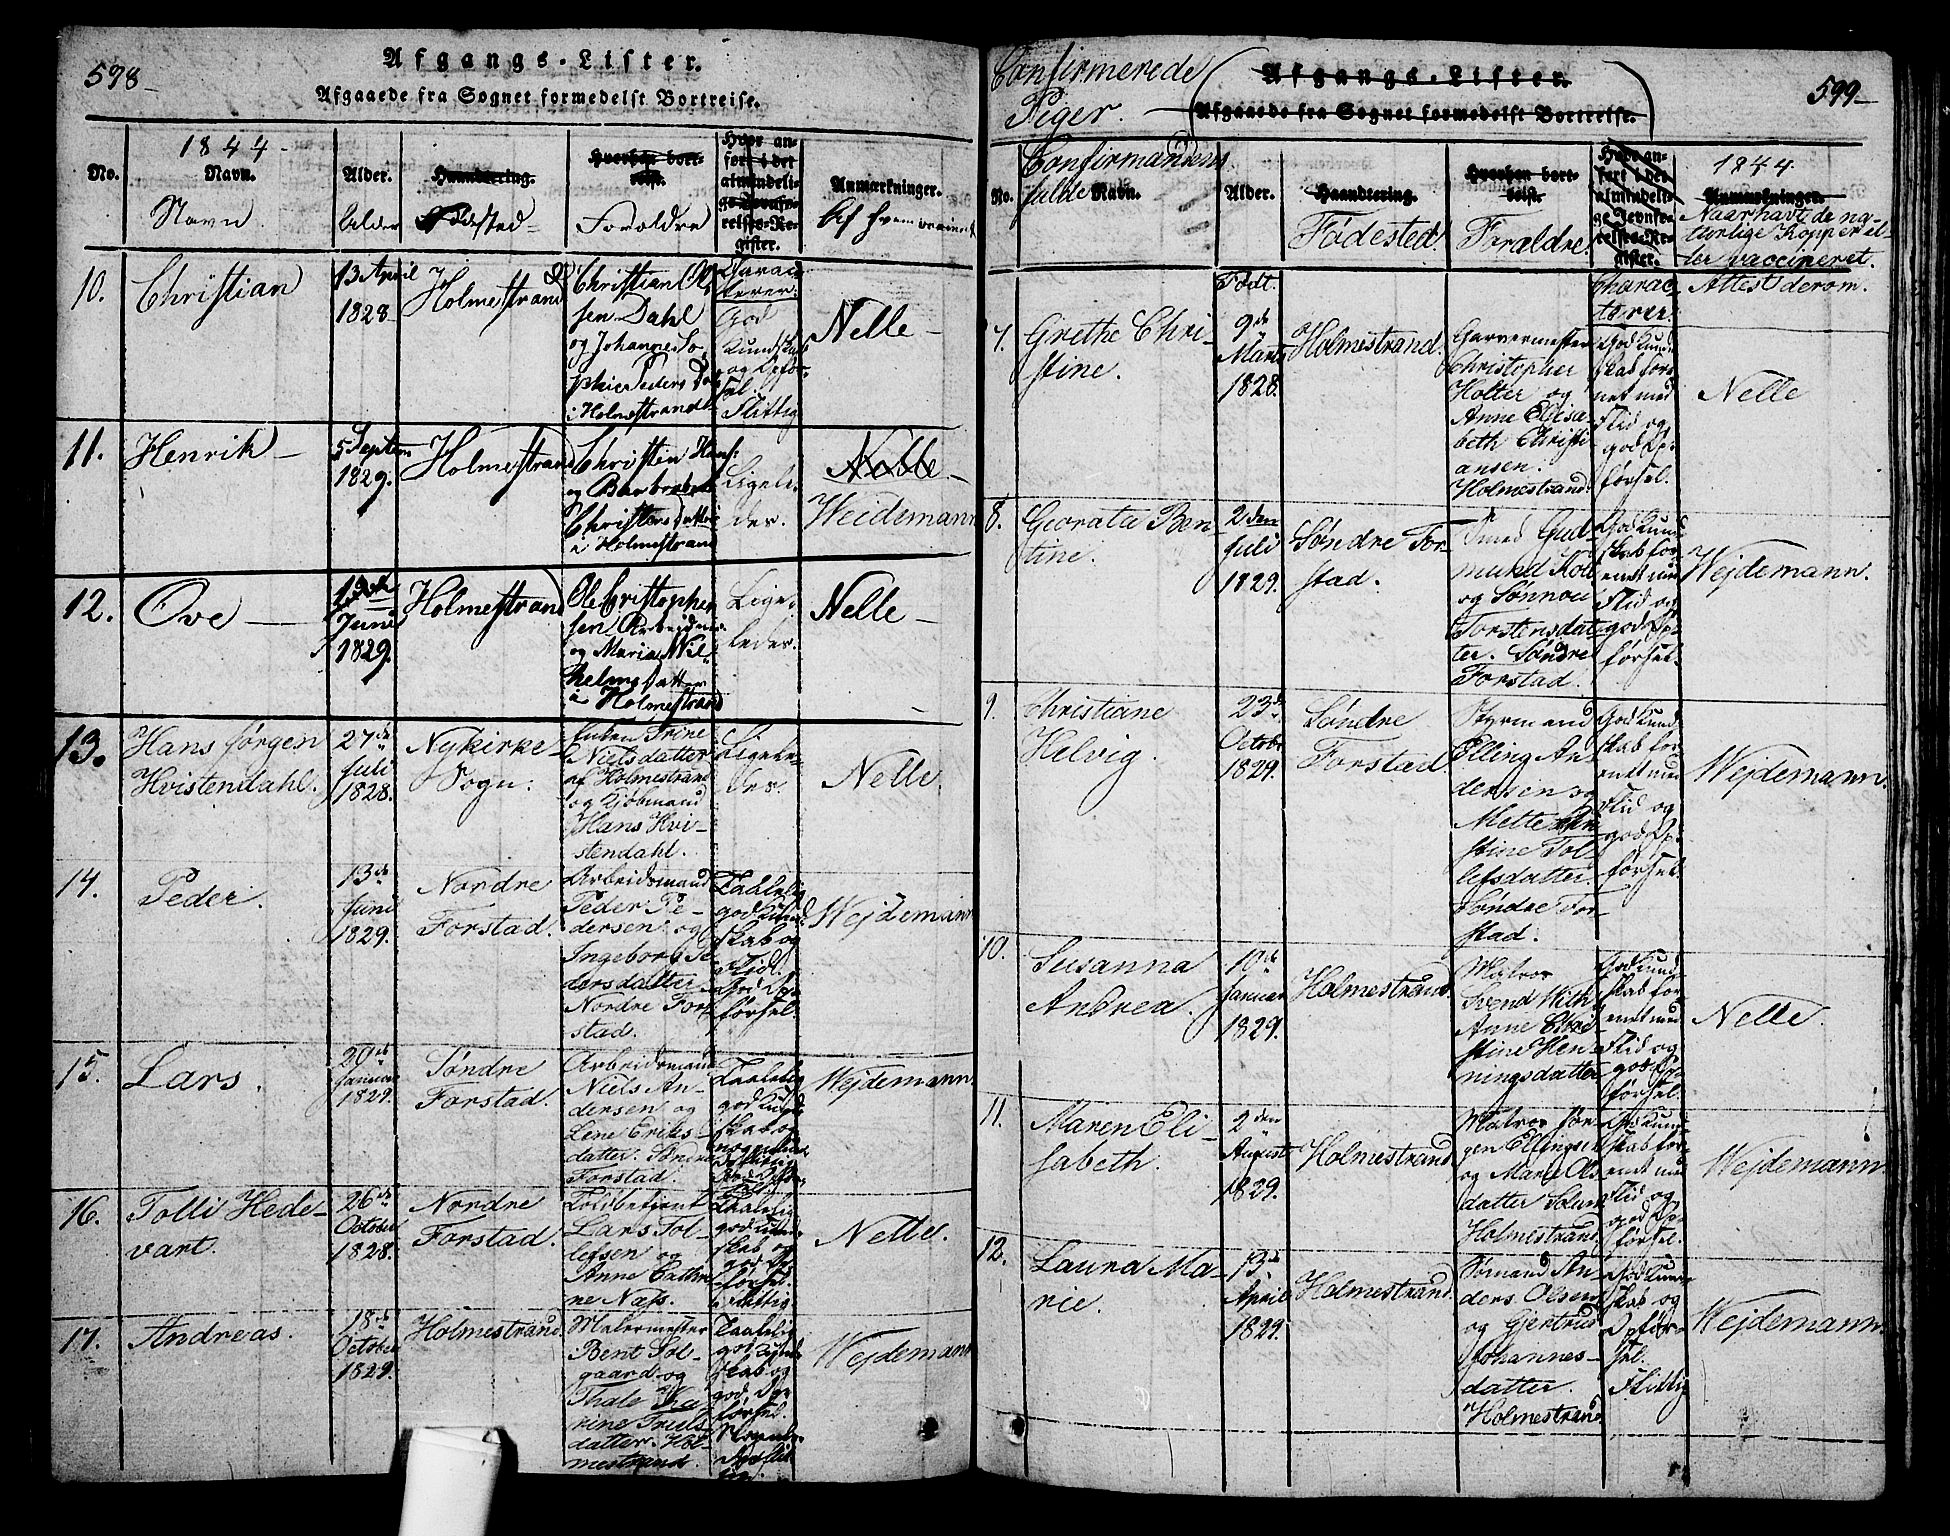 598
Afgangs-Lister.
Afgaaede fra Sognet formedelst Bortreise.
1844
No.
Navn.
Alder.
Haandtering.
Hvorhen bort-
reist.
Hvor an-
ført i det
almindeli-
ge Jevnfø-
relses-Re-
gister.
Anmærkninger.
Navn
Alder
Fødested
Forældre
Af hvem vaccineret
10.
Christian
13 April
1828
Holmestrand
Christian Ol-
sen Dahl
og Johanne So-
phie Peders Dat
i Holmestrand
Charac-
terer.
God
Kundskab
og Opfør-
sel.
Flittig
Nelle
11.
Henrik
5 Septem
1829.
Holmestrand
Christen Hans
og Barbrabeth
Christens Datter
i Holmestrand
Ligele-
des.
Nelle
Weidemann
12.
Ove
Juni
1829.
Holmestrand
Ole Cristopher
sen Arbeidm.
og Maria Wil-
helms Datter
i Holmestrand
Lige-
ledes.
Nelle
13.
Hans Jørgen
Hvistendahl.
27de
Juli
1828.
Nykirke
Sogn.
Enken Trine
Nielsdatter
af Holmestrand
og Kjøbmand
Hans Hvi-
stendahl.
Ligele-
des.
Nelle.
14.
Peder.
13de
Juni
1829.
Nordre
Forstad.
Arbeidsmand
Peder Pe-
dersen og
Ingeborg Pe-
dersdatter
Nordre For-
stad.
Taalelig
god Kund
skab og
Flid.
God Op-
førsel
Wejdemann
15.
Lars.
29de
Januar
1829.
Søndre
Forstad.
Arbeidsmand
Niels An-
dersen og
Lene Eriks-
datter. Søndre
Forstad.
Taalelig
god Kund
skab og
Wejdemann.
16.
Tolli Hede-
vart.
26de
October
1828.
Nordre
Forstad.
Toldbetjent
Lars Tol-
lefsen og
Anne Cathri-
ne Næss.
Taalelig
god Kund
skab og
god Op-
førsel.
Flittig
Nelle.
17.
Andreas.
18de
October
1829.
Holmestrand.
Malermester
Bent Sol-
gaard og
Thale Ka-
rine Truls-
datter. Hol-
mestrand.
Taalelig
god Kund
skab og
god Op-
førsel.
Wejdemann
Confirmerede
Piger.
Afgangs-Lister.
Afgaaede fra Sognet formedelst Bortreise.
599
Confirmandens
fulde Navn.
No.
Alder.
Haandtering.
Fødested
Hvorhen bort-
reist.
Forældre
Hvor an-
ført i det
almindeli-
ge Jevnfø-
relses-Re-
gister.
1844
Anmærkninger.
Naar havt de na-
turlige Kopper el-
ler vaccineret.
Attest derom.
Født.
Charac-
terer.
7.
Grethe Chri-
stine.
9de
Marts
1828.
Holmestrand.
Garvermester
Christopher
Holter og
Anne Elisa
beth Christi
ansen.
Holmestrand.
God Kund
skab fore-
net med
Flid og
god Op-
førsel.
Nelle
8.
Georata Ben-
tine.
2den
Juli
1829.
Søndre For-
stad.
Smed Gud-
mund Kol
og Sønnou
Torstensdat-
ter. Søndre
Forstad.
God Kund
skab for-
enet med
Flid og
god Op-
førsel.
Wejdemann.
9.
Christiane
Helvig.
23de
Octobr
1829.
Søndre
Forstad.
Styrmand
Elling An-
dersen og
Mette
stine Tol-
lefsdatter.
Søndre For-
stad.
God Kund
skab for-
enet med
Flid og
god Op-
førsel.
Wejdemann.
10.
Susanna
Andrea.
10de
Januar
1829.
Holmestrand.
Matros
Svend With
Anne Chri-
stine Hen-
ningsdatter
God Kund
skab for-
enet med
Flid og
god Op-
førsel.
Nelle.
11.
Maren Eli-
sabeth.
2den
August
1829.
Holmestrand
Matros Jør-
gen Ellingsen
og Marie Ols-
datter
Holmestrand
God Kund
skab for-
enet med
Flid og
god Op-
førsel.
Wejdemann
12.
Laura Ma-
rie.
13de
April
1829.
Holmestrand.
Sømand An-
ders Olsen
og Gjertrud
Johannes-
datter.
Holmestrand
God Kund
skab og
Opfør-
sel.
Flittig
Wejdemann.